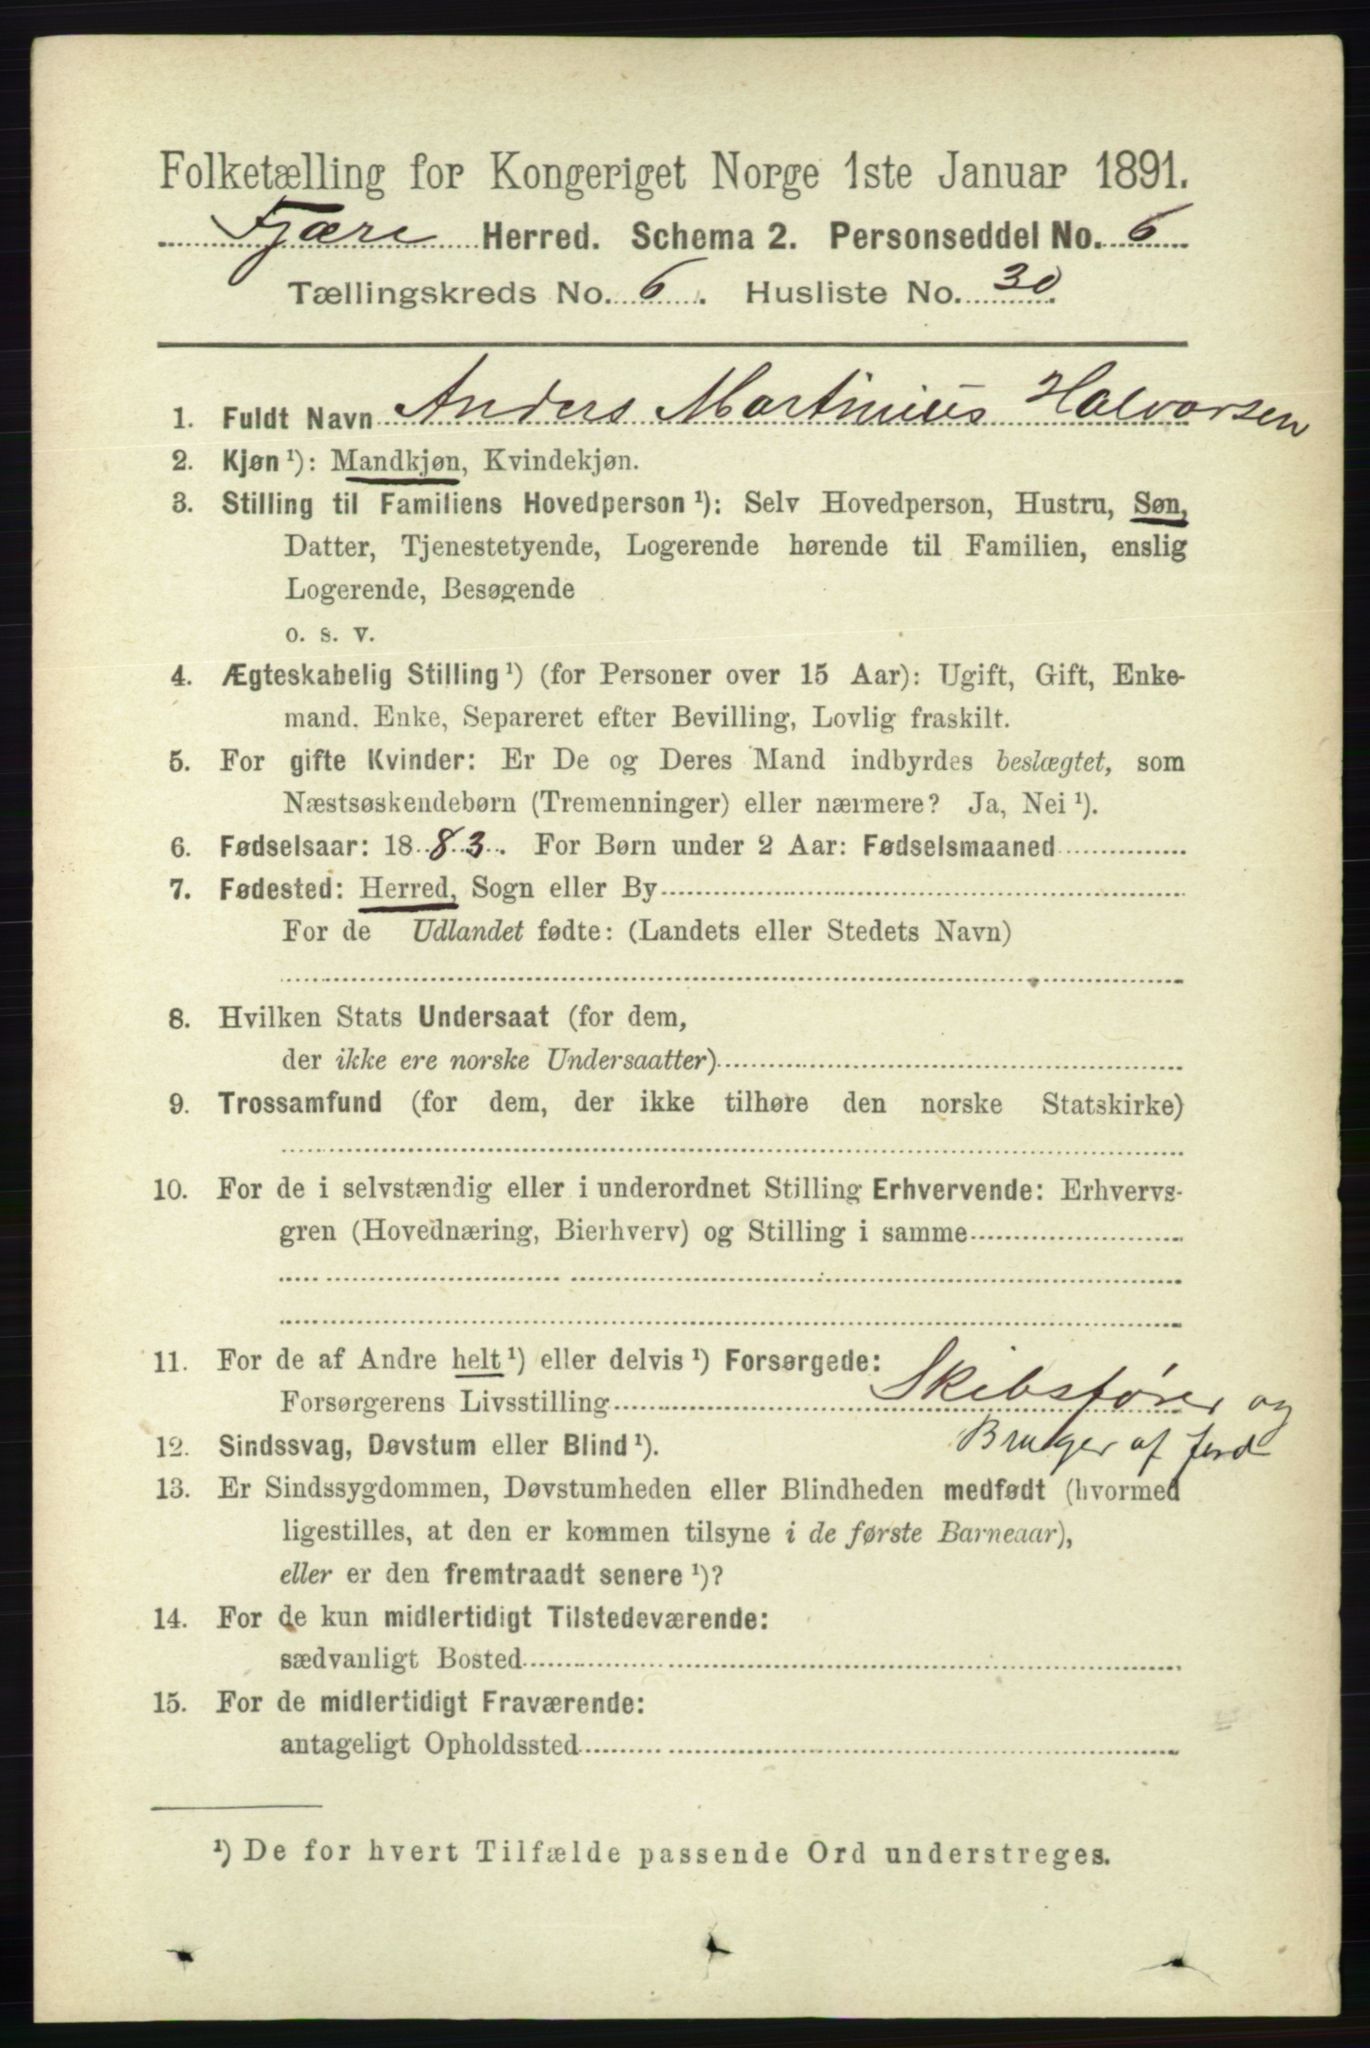 Folketælling for Kongeriget Norge 1ste Januar 1891.
Fjære Herred. Schema 2. Personseddel No. 6
Tællingskreds No. 6. Husliste No. 30.
1. Fuldt Navn Anders Martinius Halvorsen
2. Kjøn ¹): Mandkjøn, Kvindekjøn.
3. Stilling til Familiens Hovedperson ¹): Selv Hovedperson, Hustru, Søn,
Datter, Tjenestetyende, Logerende hørende til Familien, enslig
Logerende, Besøgende
o. s. v.
4. Ægteskabelig Stilling ¹) (for Personer over 15 Aar): Ugift, Gift, Enke-
mand. Enke, Separeret efter Bevilling, Lovlig fraskilt.
5. For gifte Kvinder: Er De og Deres Mand indbyrdes beslægtet, som
Næstsøskendebørn (Tremenninger) eller nærmere? Ja, Nei ¹).
6. Fødselsaar: 1883. For Børn under 2 Aar: Fødselsmaaned
7. Fødested: Herred, Sogn eller By
For de Udlandet fødte: (Landets eller Stedets Navn)
8. Hvilken Stats Undersaat (for dem,
der ikke ere norske Undersaatter)
9. Trossamfund (for dem, der ikke tilhøre den norske Statskirke)
10. For de i selvstændig eller i underordnet Stilling Erhvervende: Erhvervs-
gren (Hovednæring, Bierhverv) og Stilling i samme
11. For de af Andre helt ¹) eller delvis ¹) Forsørgede:
Forsørgerens Livsstilling Skibsfører og
Bruger af Jord
12. Sindssvag, Døvstum eller Blind ¹).
13. Er Sindssygdommen, Døvstumheden eller Blindheden medfødt (hvormed
ligestilles, at den er kommen tilsyne i de første Barneaar),
eller er den fremtraadt senere ¹)?
14. For de kun midlertidigt Tilstedeværende:
sædvanligt Bosted
15. For de midlertidigt Fraværende:
antageligt Opholdssted
¹) De for hvert Tilfælde passende Ord understreges.